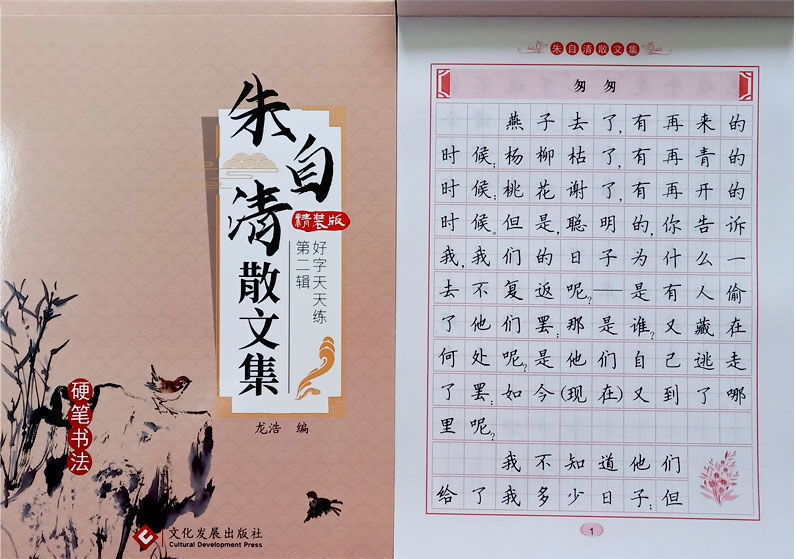 朱自清
散文集
精装版
好字天天练
第二辑
龙浩 编
硬笔书法
文化发展出版社
Cultural Development Press
朱自清散文集
匆 匆
燕子去了,有再来的
时候;杨柳枯了,有再青的
时候;桃花谢了,有再开的
时候。但是,聪明的,你告诉
我,我们的日子为什么一
去不复返呢?——是有人偷
了他们罢:那是谁?又藏在
何处呢?是他们自己逃走
了罢:如今(现在)又到了哪
里呢?
我不知道他们
给了我多少日子;但
1